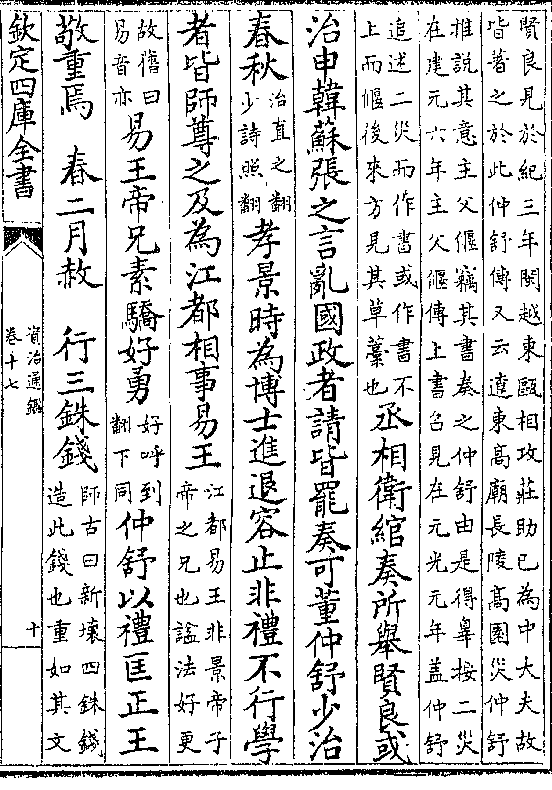 賢良見於紀三年閩越東甌相攻莊助已為中大夫故
皆著之於此仲舒傳又云遼東高廟長陵高園災仲舒
推說其意主父偃竊其書奏之仲舒由是得辠按二災
在建元六年主父偃傳上書召見在元光元年蓋仲舒
追述二災而作書或作書不
上而偃後來方見其草藁也
丞相衛綰奏所舉賢良或
治申韓蘇張之言亂國政者請皆罷奏可董仲舒少治
春秋
治直之翻
少詩照翻
孝景時為博士進退容止非禮不行學
者皆師尊之及為江都相事易王
江都易王非景帝子
帝之兄也諡法好更
故舊曰
易音亦
易王帝兄素驕好勇
好呼到
翻下同
仲舒以禮匡正王
敬重焉 春二月赦 行三銖錢
師古曰新壞四銖錢
造此錢也重如其文
欽定四庫全書
資治通鑑
卷十七
十